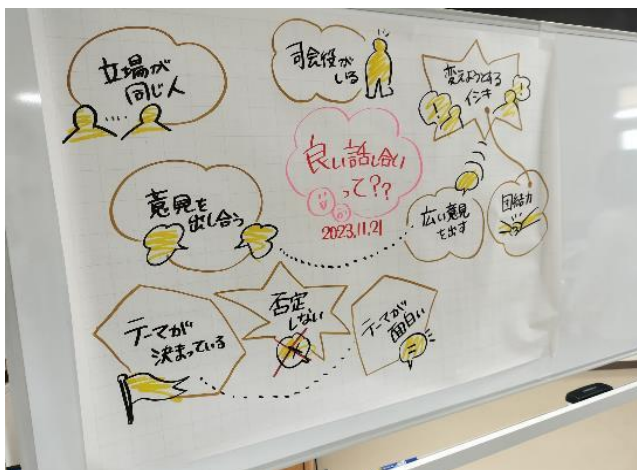 立場が
同じ人
司会役が
いる
変えようとする
イシキ
良い話し合い
って??
2023.11.21
意見を
出し合う
広い意見
を出す
団結力
テーマが
決まっている
否定
しない
テーマが
面白い